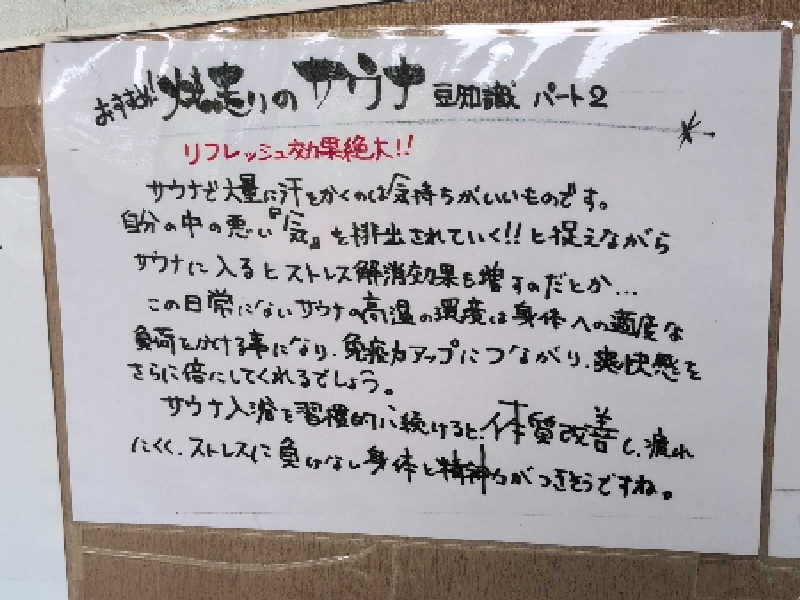 おすすめ! 焼走りのサウナ 豆知識 パート2
リフレッシュ効果絶大!!
サウナで大量に汗をかくのは気持ちがいいものです。
自分の中の悪い『気』を排出されていく!! と捉えながら
サウナに入るとストレス解消効果も増すのだとか...
この日常にないサウナの高温の環境は身体への適度な
負荷をかける事になり、免疫力アップにつながり、爽快感を
さらに倍にしてくれるでしょう。
サウナ入浴を習慣的に続けると、体質改善し、疲れ
にくく、ストレスに負けない身体と精神力がつきそうですね。